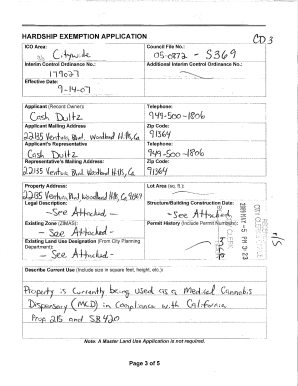 CD 3
HARDSHIP EXEMPTION APPLICATION
ICO Area:
Citywide
Council File No.:
05-0872 - S369
Interim Control Ordinance No.:
179027
Additional Interim Control Ordinance No.:
Effective Date:
9-14-07
Applicant (Record Owner):
Cash Dultz
Telephone:
949-500-1806
Applicant Mailing Address
22135 Ventura Blvd, Woodland Hills, Ca
Zip Code:
91364
Applicant's Representative
Cash Dultz
Telephone:
949-500-1806
Representative's Mailing Address
22135 Ventura Blvd, Woodland Hills, Ca
Zip Code:
91364
Property Address:
22135 Ventura Blvd, Woodland Hills, Ca 91364
Lot Area (sq. ft.):
Legal Description:
- See Attached -
Structure/Building Construction Date:
- See Attached -
Existing Zone
- See Attached -
Permit History (Include Permit Numbers)
Existing Land Use Designation (From City Planning
Department):
- See Attached -
Describe Current Use (Include size in square feet, height, etc.):
Property is Currently being used as a Medical Cannabis
Dispensary (MCD) in Compliance with California
Prop 215 and SB 420
Note: A Master Land Use Application is not required.
Page 3 of 5